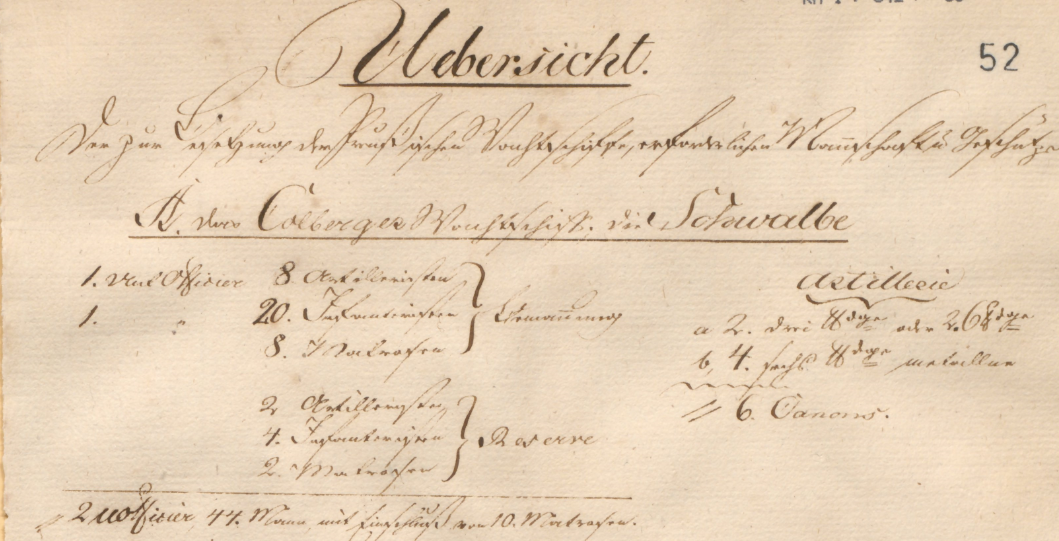 52
Uebersicht.
Der zur Besetzung der Preußischen Wachtschiffe, erforderlichen Mannschaft u Geschütze
A. das Colberger Wachtschiff. die Schwalbe
1. Unt Officier 8. Artilleristen
1. " 20. Infanteristen Bemannung
8. Matrosen
2 Artilleristen
4. Infanteristen Reserve
2. Matrosen
Artillerie
a 2. drei ℔dge oder 2. 6 ℔dge
b, 4. sechs ℔dge metallne
6. Canons.
2 UOfficier 44. Mann mit Einschluß von 10. Matrosen.